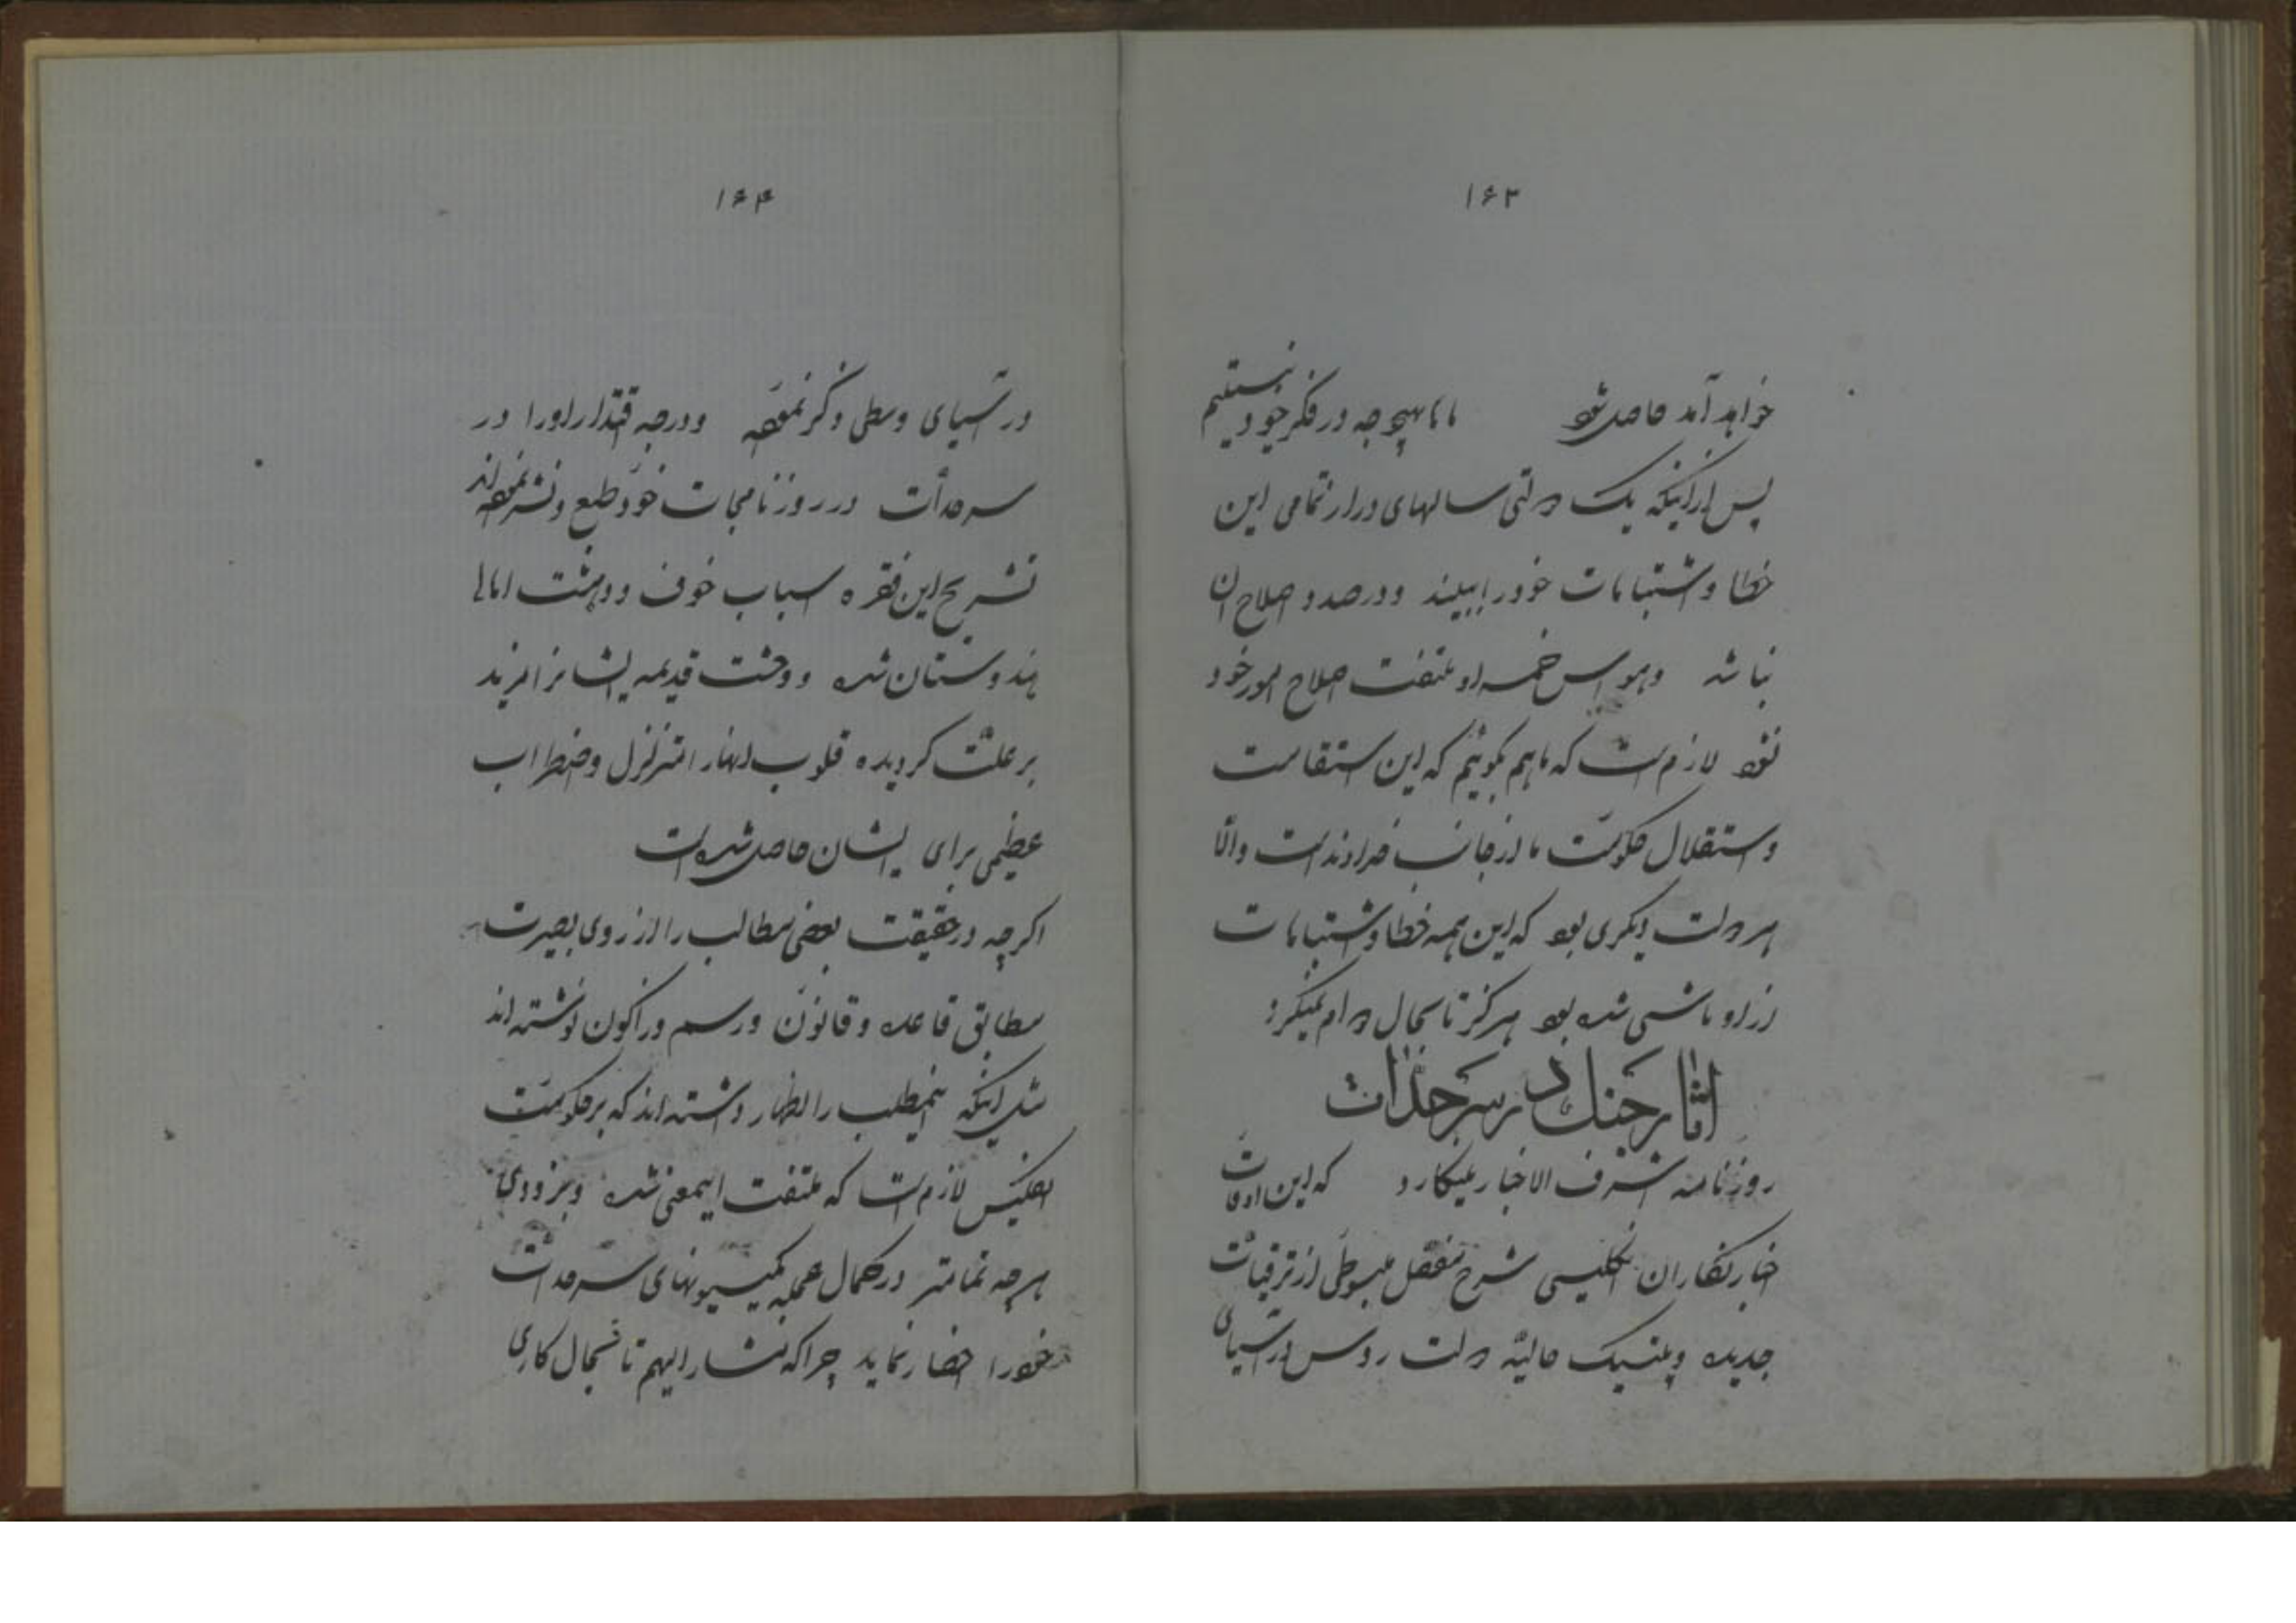 ۱۶۳
خواهد آمد حاصل شود ما بهیچوجه در فکر خود نیستیم
پس از آنکه یک دولتی سالهای دراز تمامی این
خطا و اشتباهات خود را ببیند و درصدد اصلاح آن
نباشد و حواس خمسه او ملتفت اصلاح امور خود
نشود لازم است که ما هم بگوئیم که این استقامت
و استقلال حکومت ما از جانب خداوند است والّا
هر دولت دیگری بود که این همه خطا و اشتباهات
از او ناشی شده بود هرگز تا بحال دوام نمیکرد
آثار جنک در سرحدات
روزنامه اشرف الاخبار مینکارد که این اوقات
اخبارنکاران انکلیسی شرح مفصل مبسوطی از ترقیات
جدیده و پلتیک حالیّه دولت روس در آسیای
۱۶۴
در آسیای وسطی ذکر نموده و درجه اقتدار او را در
سرحدات در روزنامجات خود طبع و نشر نموده‌اند
تشریح این فقره اسباب خوف و دهشت اهالی
هندوستان شده و وحشت قدیمه ایشانرا مزید
بر علت کردیده قلوب آنها را تزلزل و اضطراب
عظیمی برای ایشان حاصل شده است
اکرچه در حقیقت بعضی مطالب را از روی بصیرت
مطابق قاعده و قانون و رسم دراکون نوشته‌اند
مثل اینکه اینمطلب را اظهار داشته‌اند که بر حکومت
انکلیس لازم است که ملتفت اینمعنی شده و بزودی
هرچه تمامتر در کمال عجله کمیسیونهای سرحدات
خود را احضار نماید چراکه مشارالیهم تا بحال کاری